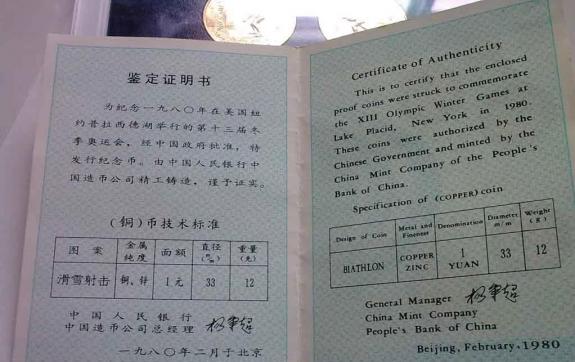 鉴定证明书
为纪念一九八〇年在美国纽
约普拉西德湖举行的第十三届冬
季奥运会，经中国政府批准，特
发行纪念币。由中国人民银行中
国造币公司精工铸造，谨予证实。
(铜)币技术标准
图案 金属纯度 面额 直径(m/m) 重量(克)
滑雪射击 铜、锌 1元 33 12
中国人民银行
中国造币公司总经理
一九八〇年二月于北京
Certificate of Authenticity
This is to certify that the enclosed
proof coins were struck to commemorate
the XIII Olympic Winter Games at
Lake Placid, New York in 1980.
These coins were authorized by the
Chinese Government and minted by the
China Mint Company of the People's
Bank of China.
Specification of (COPPER) coin
Design of Coin Metal and Fineness Denomination Diameter m/m Weight (g)
BIATHLON COPPER ZINC 1 YUAN 33 12
General Manager
China Mint Company
People's Bank of China
Beijing, February, 1980